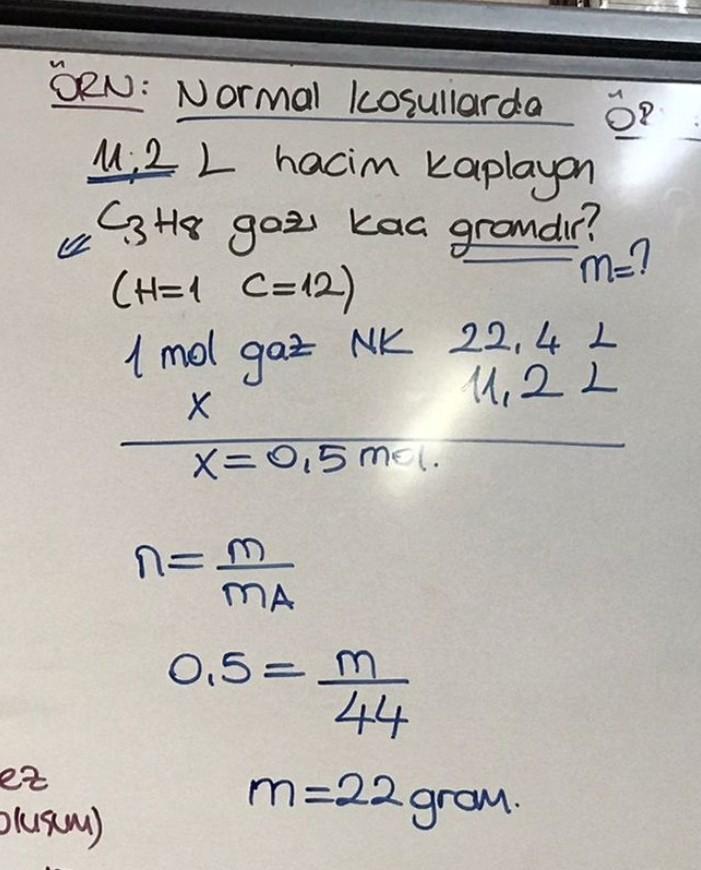 ÖRN: Normal koşullarda
11,2 L hacim kaplayan
C3H8 gazı kaç gramdır?
m=?
(H=1 C=12)
1 mol gaz NK 22,4 L
x 11,2 L
x=0,5 mol.
n= m
mA
0,5= m
44
m=22 gram.
ez